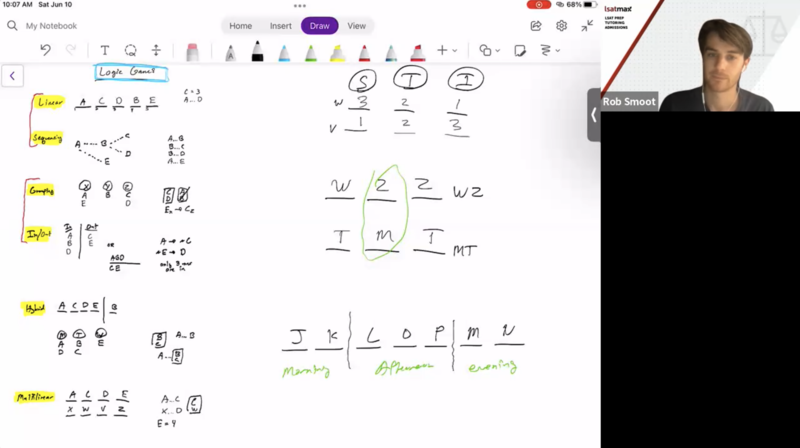 10:07 AM Sat Jun 10
68%
My Notebook
Home Insert Draw View
Logic Games
Linear
A C D B E
C = 3
A...D
Sequencing
A B C D E
A...B
B...C
B...D
A...E
Grouping
X Y Z
A B C
E D
In/Out
In Out
A C
B E
D
or
ABD
CE
A → C
Hybrid
A C D E | B
A B E
D C
A...B
A...
Multilinear
A C D E
X W V Z
A...C
X...D
E = 4
S T I
W 3 2 1
V 1 2 3
W Z Z WZ
T M I MT
J K L O P M N
Morning Afternoon evening
lsatmax
LSAT PREP
TUTORING
ADMISSIONS
Rob Smoot